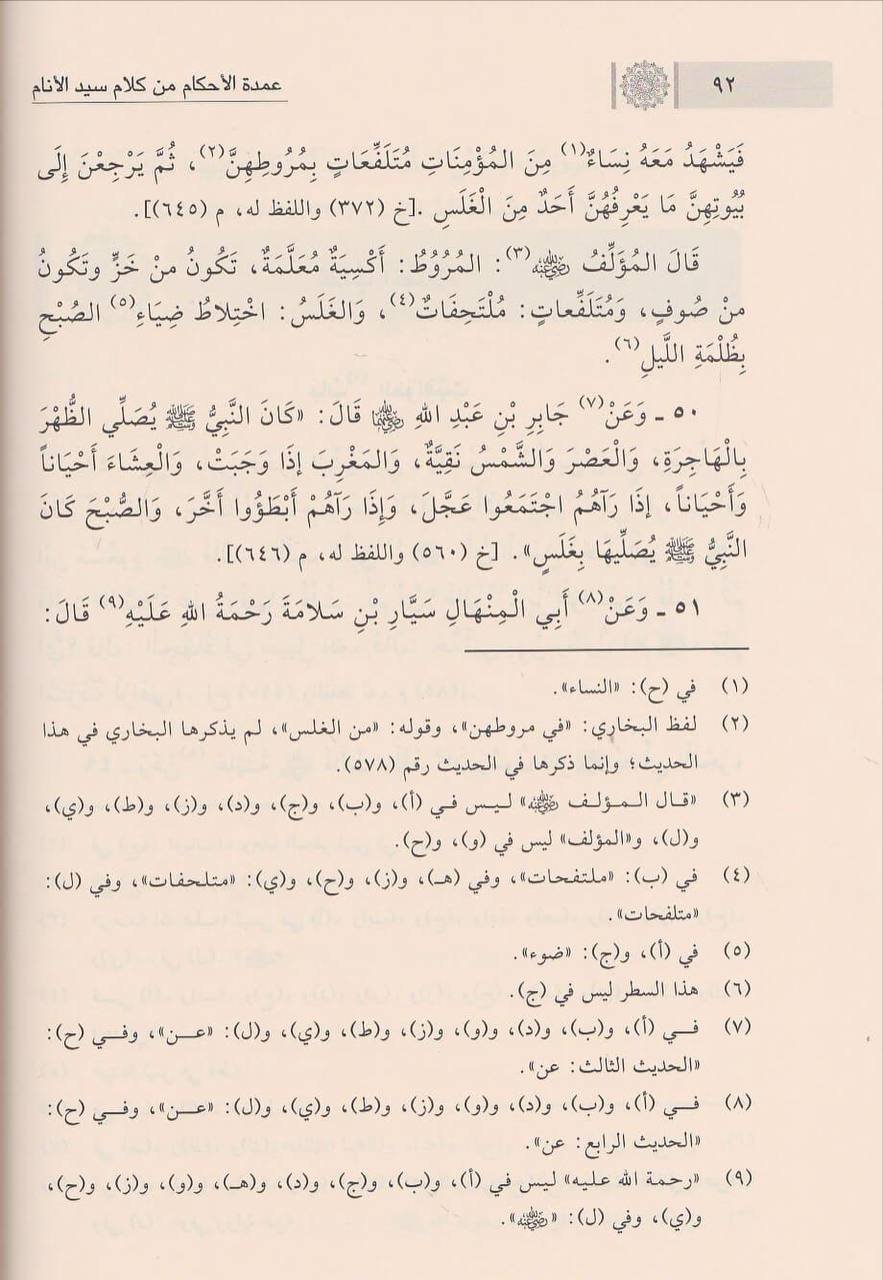 ٩٢
عمدة الأحكام من كلام سيد الأنام
فَيَشْهَدُ مَعَهُ نِسَاءٌ(١) مِنَ المُؤْمِنَاتِ مُتَلَفِّعَاتٍ بِمُرُوطِهِنَّ(٢)، ثُمَّ يَرْجِعْنَ إِلَى
بُيُوتِهِنَّ مَا يَعْرِفُهُنَّ أَحَدٌ مِنَ الْغَلَسِ .[خ (٣٧٢) واللفظ له، م (٦٤٥)].
قَالَ المُؤَلِّفُ رضي الله عنه(٣): المُرُوُطُ: أَكْسِيَةٌ مُعَلَّمَةٌ، تَكُونُ مِنْ خَزٍّ وتَكُونُ
مِنْ صُوفٍ، وَمُتَلَفِّعاتٍ: مُلْتَحِفَاتٌ(٤)، وَالغَلَسُ: اخْتِلاطُ ضِيَاءِ(٥) الصُبْحِ
بِظُلْمَةِ اللَّيلِ(٦).
٥٠ ـ وَعَنْ(٧) جَابِرِ بْنِ عَبْدِ اللهِ رضي الله عنهما قَالَ: «كَانَ النَّبِيُّ ﷺ يُصَلِّي الظُّهْرَ
بِالْهَاجِرَةِ، وَالْعَصْرَ وَالشَّمْسُ نَقِيَّةٌ، وَالمَغْرِبَ إِذَا وَجَبَتْ، وَالْعِشَاءَ أَحْيَاناً
وَأَحْيَاناً، إذَا رَآهُمُ اجْتَمَعُوا عَجَّلَ، وَإِذَا رَآهُمْ أَبْطَؤُوا أَخَّرَ، وَالصُّبْحَ كَانَ
النَّبِيُّ ﷺ يُصَلِّيهَا بِغَلَسٍ». [خ (٥٦٠) واللفظ له، م (٦٤٦)].
٥١ ـ وَعَنْ(٨) أَبِي الْمِنْهَالِ سَيَّارِ بْنِ سَلامَةَ رَحْمَةُ اللهِ عَلَيْهِ(٩) قَالَ:
(١) في (ح): «النساء».
(٢) لفظ البخاري: «في مروطهن»، وقوله: «من الغلس»، لم يذكرها البخاري في هذا
الحديث؛ وإنما ذكرها في الحديث رقم (٥٧٨).
(٣) «قال المؤلف رضي الله عنه» ليس في (أ)، و(ب)، و(ج)، و(د)، و(ز)، و(ط)، و(ي)،
و(ل)، و«المؤلف» ليس في (و)، و(ح).
(٤) في (ب): «ملتفحات»، وفي (هـ)، و(ز)، و(ح)، و(ي): «متلحفات»، وفي (ل):
«متلفحات».
(٥) في (أ)، و(ج): «ضوء».
(٦) هذا السطر ليس في (ج).
(٧) في (أ)، و(ب)، و(د)، و(و)، و(ز)، و(ط)، و(ي)، و(ل): «عن»، وفي (ح):
«الحديث الثالث: عن».
(٨) في (أ)، و(ب)، و(د)، و(و)، و(ز)، و(ط)، و(ي)، و(ل): «عن»، وفي (ح):
«الحديث الرابع: عن».
(٩) «رحمة الله عليه» ليس في (أ)، و(ب)، و(ج)، و(د)، و(هـ)، و(و)، و(ز)، و(ح)،
و(ي)، وفي (ل): «رضي الله عنه».